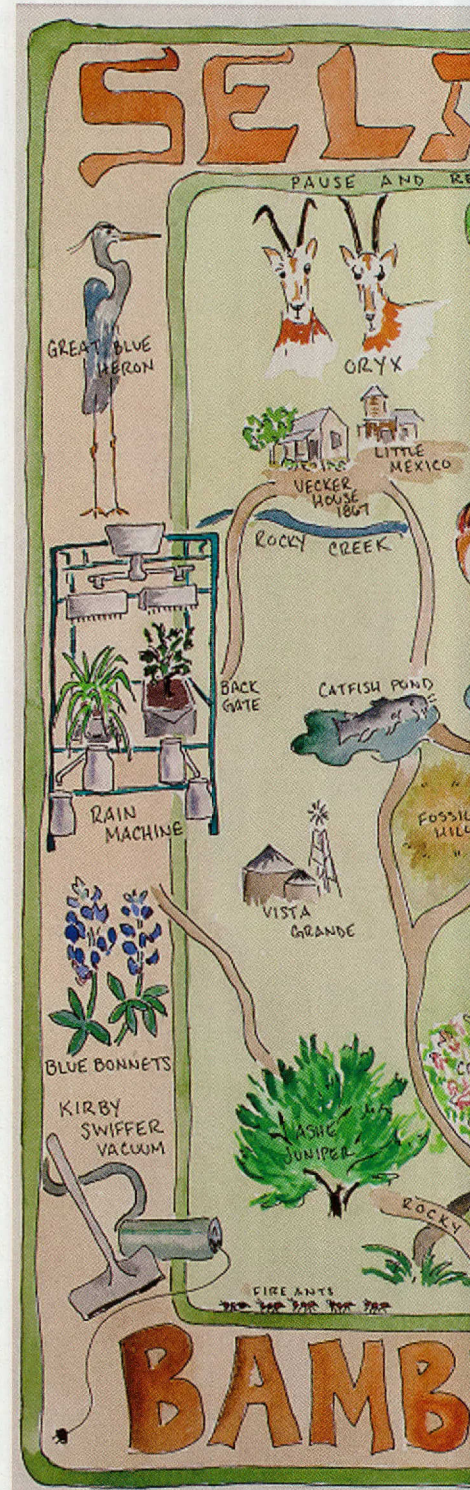 SEL
PAUSE AND RE
GREAT BLUE
HERON
ORYX
LITTLE
MEXICO
VECKER
HOUSE
1867
ROCKY CREEK
BACK
GATE
CATFISH POND
RAIN
MACHINE
FOSSIL
HILL
VISTA
GRANDE
BLUE BONNETS
KIRBY
SWIFFER
VACUUM
ASHE
JUNIPER
CO
ROCKY
FIRE ANTS
BAMB